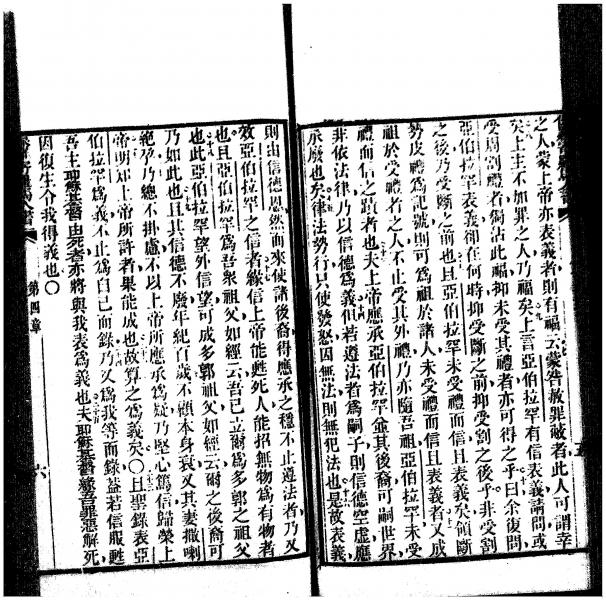 之人蒙上帝亦表義者則有福云蒙咎赦罪蔽者此人可謂幸
矣上主不加罪之人乃福矣上言亞伯拉罕有信表義請問或
受周割禮者獨沾此福抑未受其禮者亦可得之乎曰余復問
亞伯拉罕表義卻在何時抑受斷之前抑受割之後乎非受割
之後乃受斷之前也且亞伯拉罕未受禮而信且表義矣領斷
勢皮禮爲記號則可爲祖於諸人未受禮而信且表義者又成
祖於受禮者之人不止受其外禮乃亦隨吾祖亞伯拉罕未受
禮而信之蹟者也夫上帝應承亞伯拉罕並其後裔可嗣世界
非依法律乃以信德爲義但若遵法者爲嗣子則信德空虛應
承廢也矣律法勢行只使發怒因無法則無犯法也是故表義
五
則由信德恩然而來使諸後裔得應承之穩不止遵法者乃又
效亞伯拉罕之信者緣信上帝能甦死人能招無物爲有物者
也且亞伯拉罕爲吾衆祖父如經云吾已立爾爲多郭之祖父
也此亞伯拉罕望外信望可成多郭祖父如經云爾之後裔可
乃如此也且其信德不廢年紀百歲不顧本身衰又其妻撒喇
絕孕乃總不掛慮不以上帝所應承爲疑乃堅心篤信歸榮上
帝明知上帝所許者果能成也故算之爲義矣〇且聖錄表亞
伯拉罕爲義不止爲自己而錄乃又爲我等而錄益若信服甦
吾主耶穌基督由死者亦將與我表爲義也夫耶穌基督緣吾罪惡解死
因復生令我得義也〇
第四章
六